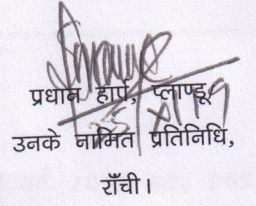 प्रधान हार्प, प्लाण्डू,
उनके नामित प्रतिनिधि,
राँची।